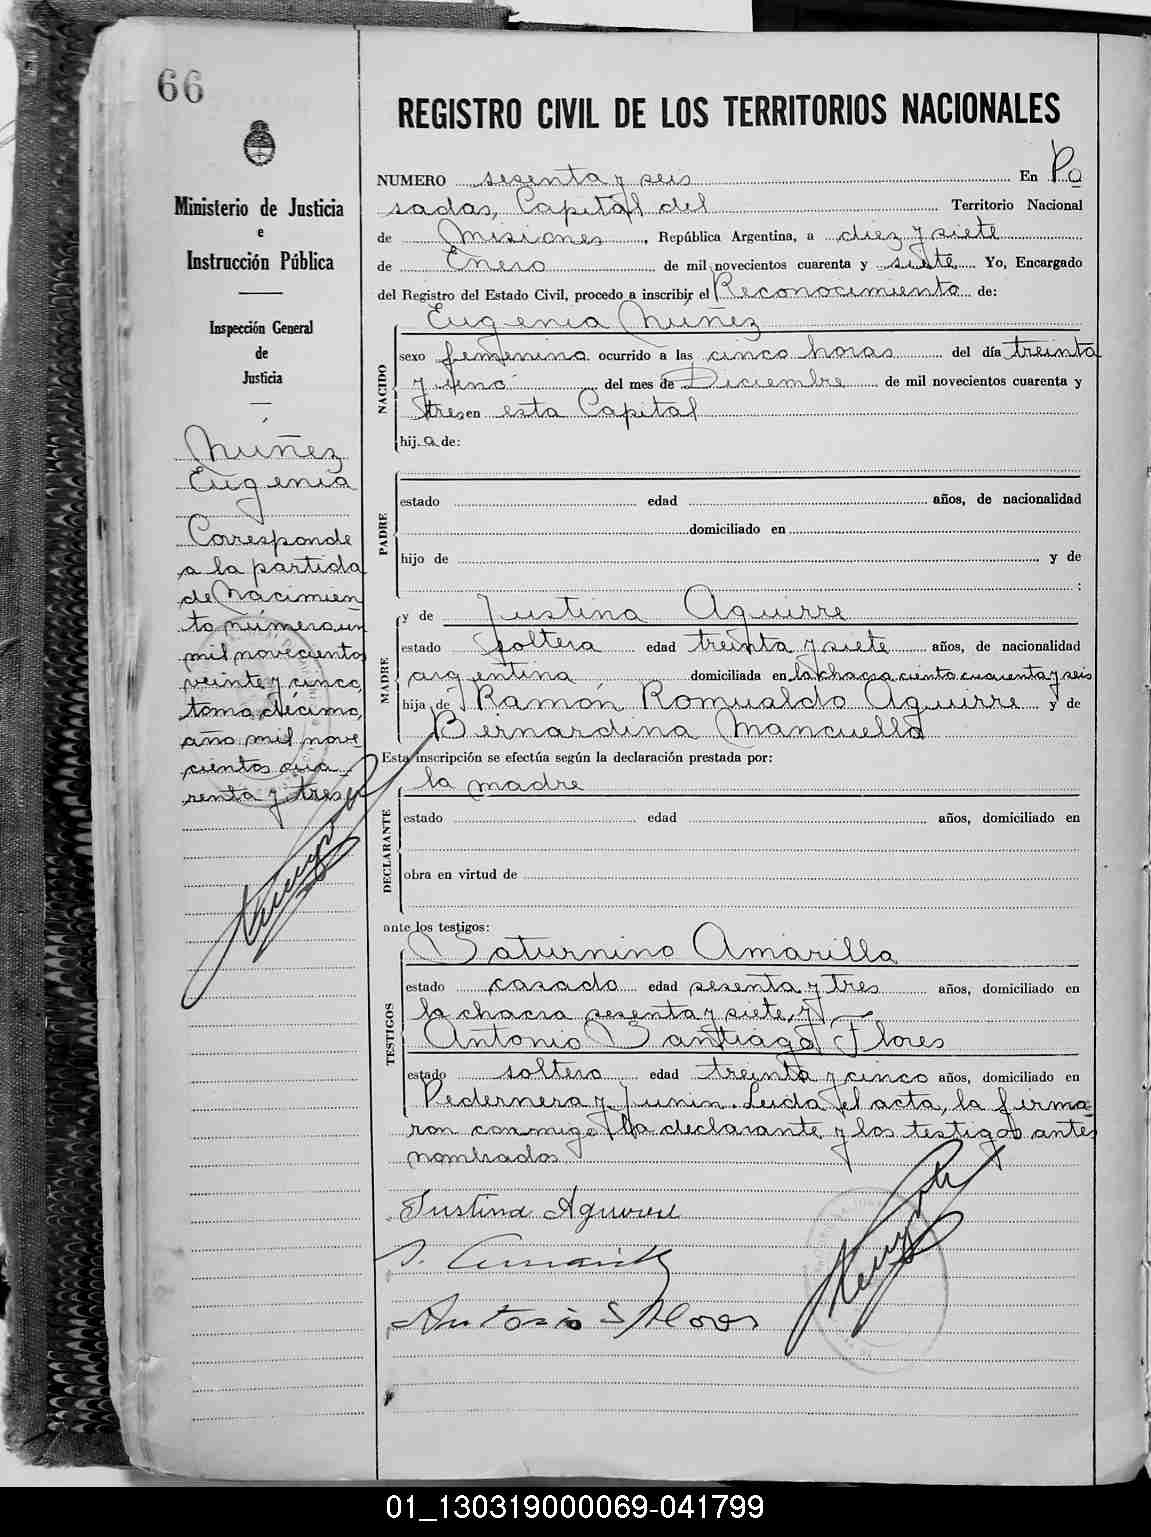 66
REGISTRO CIVIL DE LOS TERRITORIOS NACIONALES
Ministerio de Justicia
e
Instrucción Pública
Inspección General
de
Justicia
Núñez
Eugenia
Corresponde
a la partida
de Nacimien
to número un
mil novecientos
veinte y cinco,
tomo décimo,
año mil nove
cientos cua
renta y tres
NUMERO sesenta y seis En Po
sadas, Capital del Territorio Nacional
de Misiones, República Argentina, a diez y siete
de Enero de mil novecientos cuarenta y siete Yo, Encargado
del Registro del Estado Civil, procedo a inscribir el Reconocimiento de:
Eugenia Núñez
NACIDO
sexo femenino ocurrido a las cinco horas del día treinta
y uno del mes de Diciembre de mil novecientos cuarenta y
tres en esta Capital
hij.a de:
PADRE
estado edad años, de nacionalidad
domiciliado en
hijo de y de
:
y de Justina Aguirre
MADRE
estado soltera edad treinta y siete años, de nacionalidad
argentina domiciliada en la chacra ciento cuarenta y seis
hija de Ramón Romualdo Aguirre y de
Bernardina Mancuello
Esta inscripción se efectúa según la declaración prestada por:
la madre
DECLARANTE
estado edad años, domiciliado en
obra en virtud de
ante los testigos:
Saturnino Amarilla
TESTIGOS
estado casado edad sesenta y tres años, domiciliado en
la chacra sesenta y siete, y
Antonio Santiago Flores
estado soltero edad treinta y cinco años, domiciliado en
Pedernera y Junin. Leida el acta, la firma-
ron conmigo la declarante y los testigos antes
nombrados
Justina Aguirre
S. Amarilla
Antonio S Flores
01_130319000069-041799